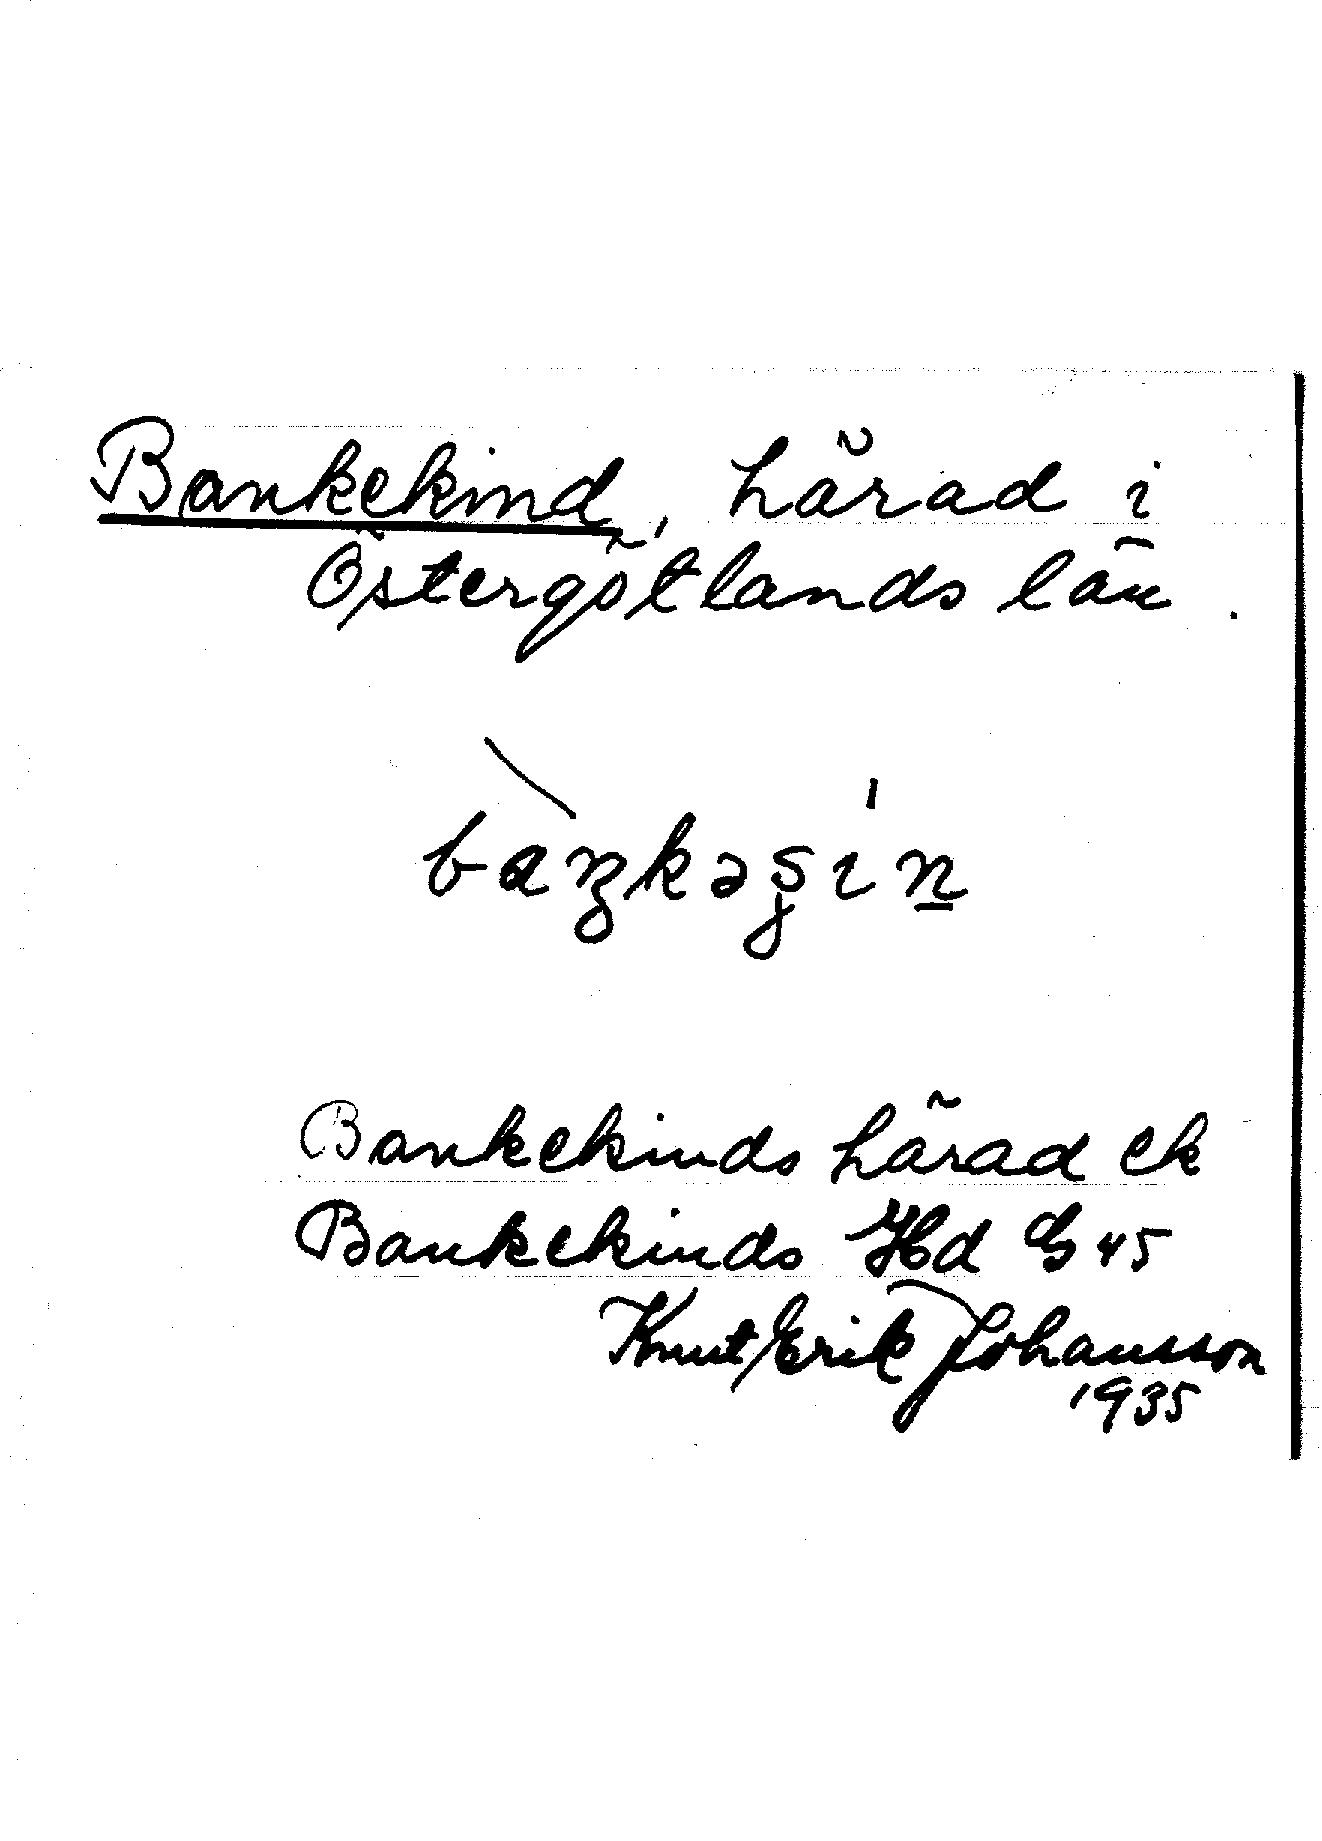 Bankekind, härad i
Östergötlands län.
bàŋkəʂın̲
Bankekinds härad ek
Bankekinds Hd G 45
Knut Erik Johansson
1935